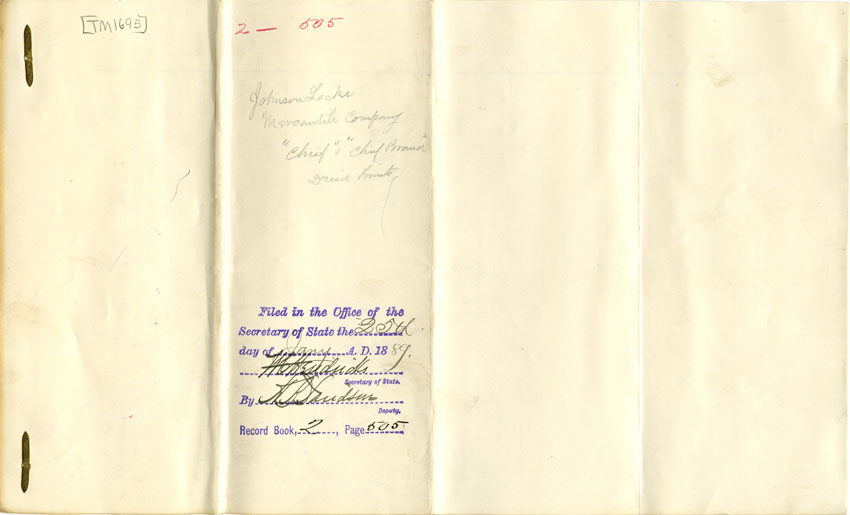 [TM1695]
2 — 505
Johnson Locke
Mercantile Company
"Chief" & "Chief Brand"
Dried Fruits
Filed in the Office of the
Secretary of State the 25th
day of Jany A. D. 1889.
W C Hendricks
Secretary of State.
By
Deputy.
Record Book, 2, Page 505